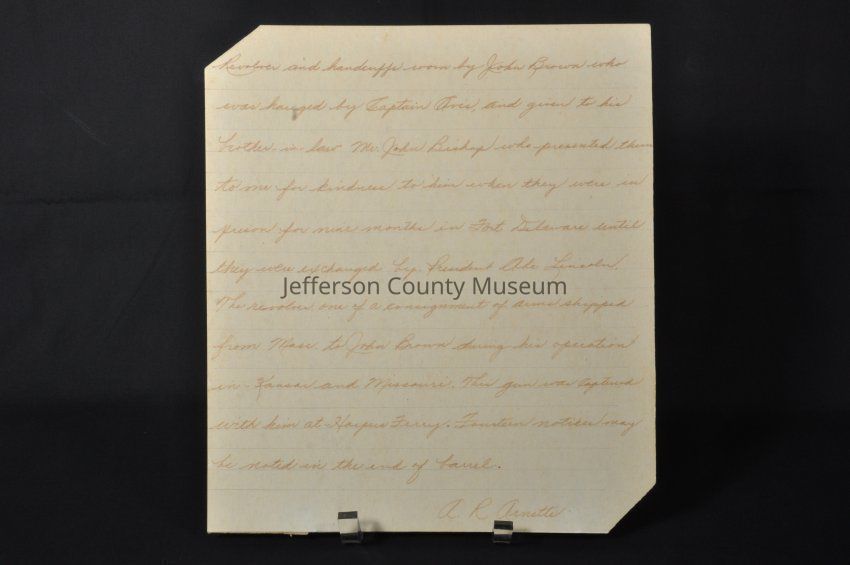 Revolver and handcuffs worn by John Brown who
was hanged by Captain Avis, and given to his
brother-in-law Mr. John Bishop who presented them
to me for kindness to him when they were in
prison for nine months in Fort Delaware until
they were exchanged by President Abe Lincoln.
Jefferson County Museum
The revolver one of a consignment of arms shipped
from Mass. to John Brown during his operation
in Kansas and Missouri. This gun was captured
with him at Harpers Ferry. Fourteen notches may
be noted in the end of barrel.
A. R. Arnette